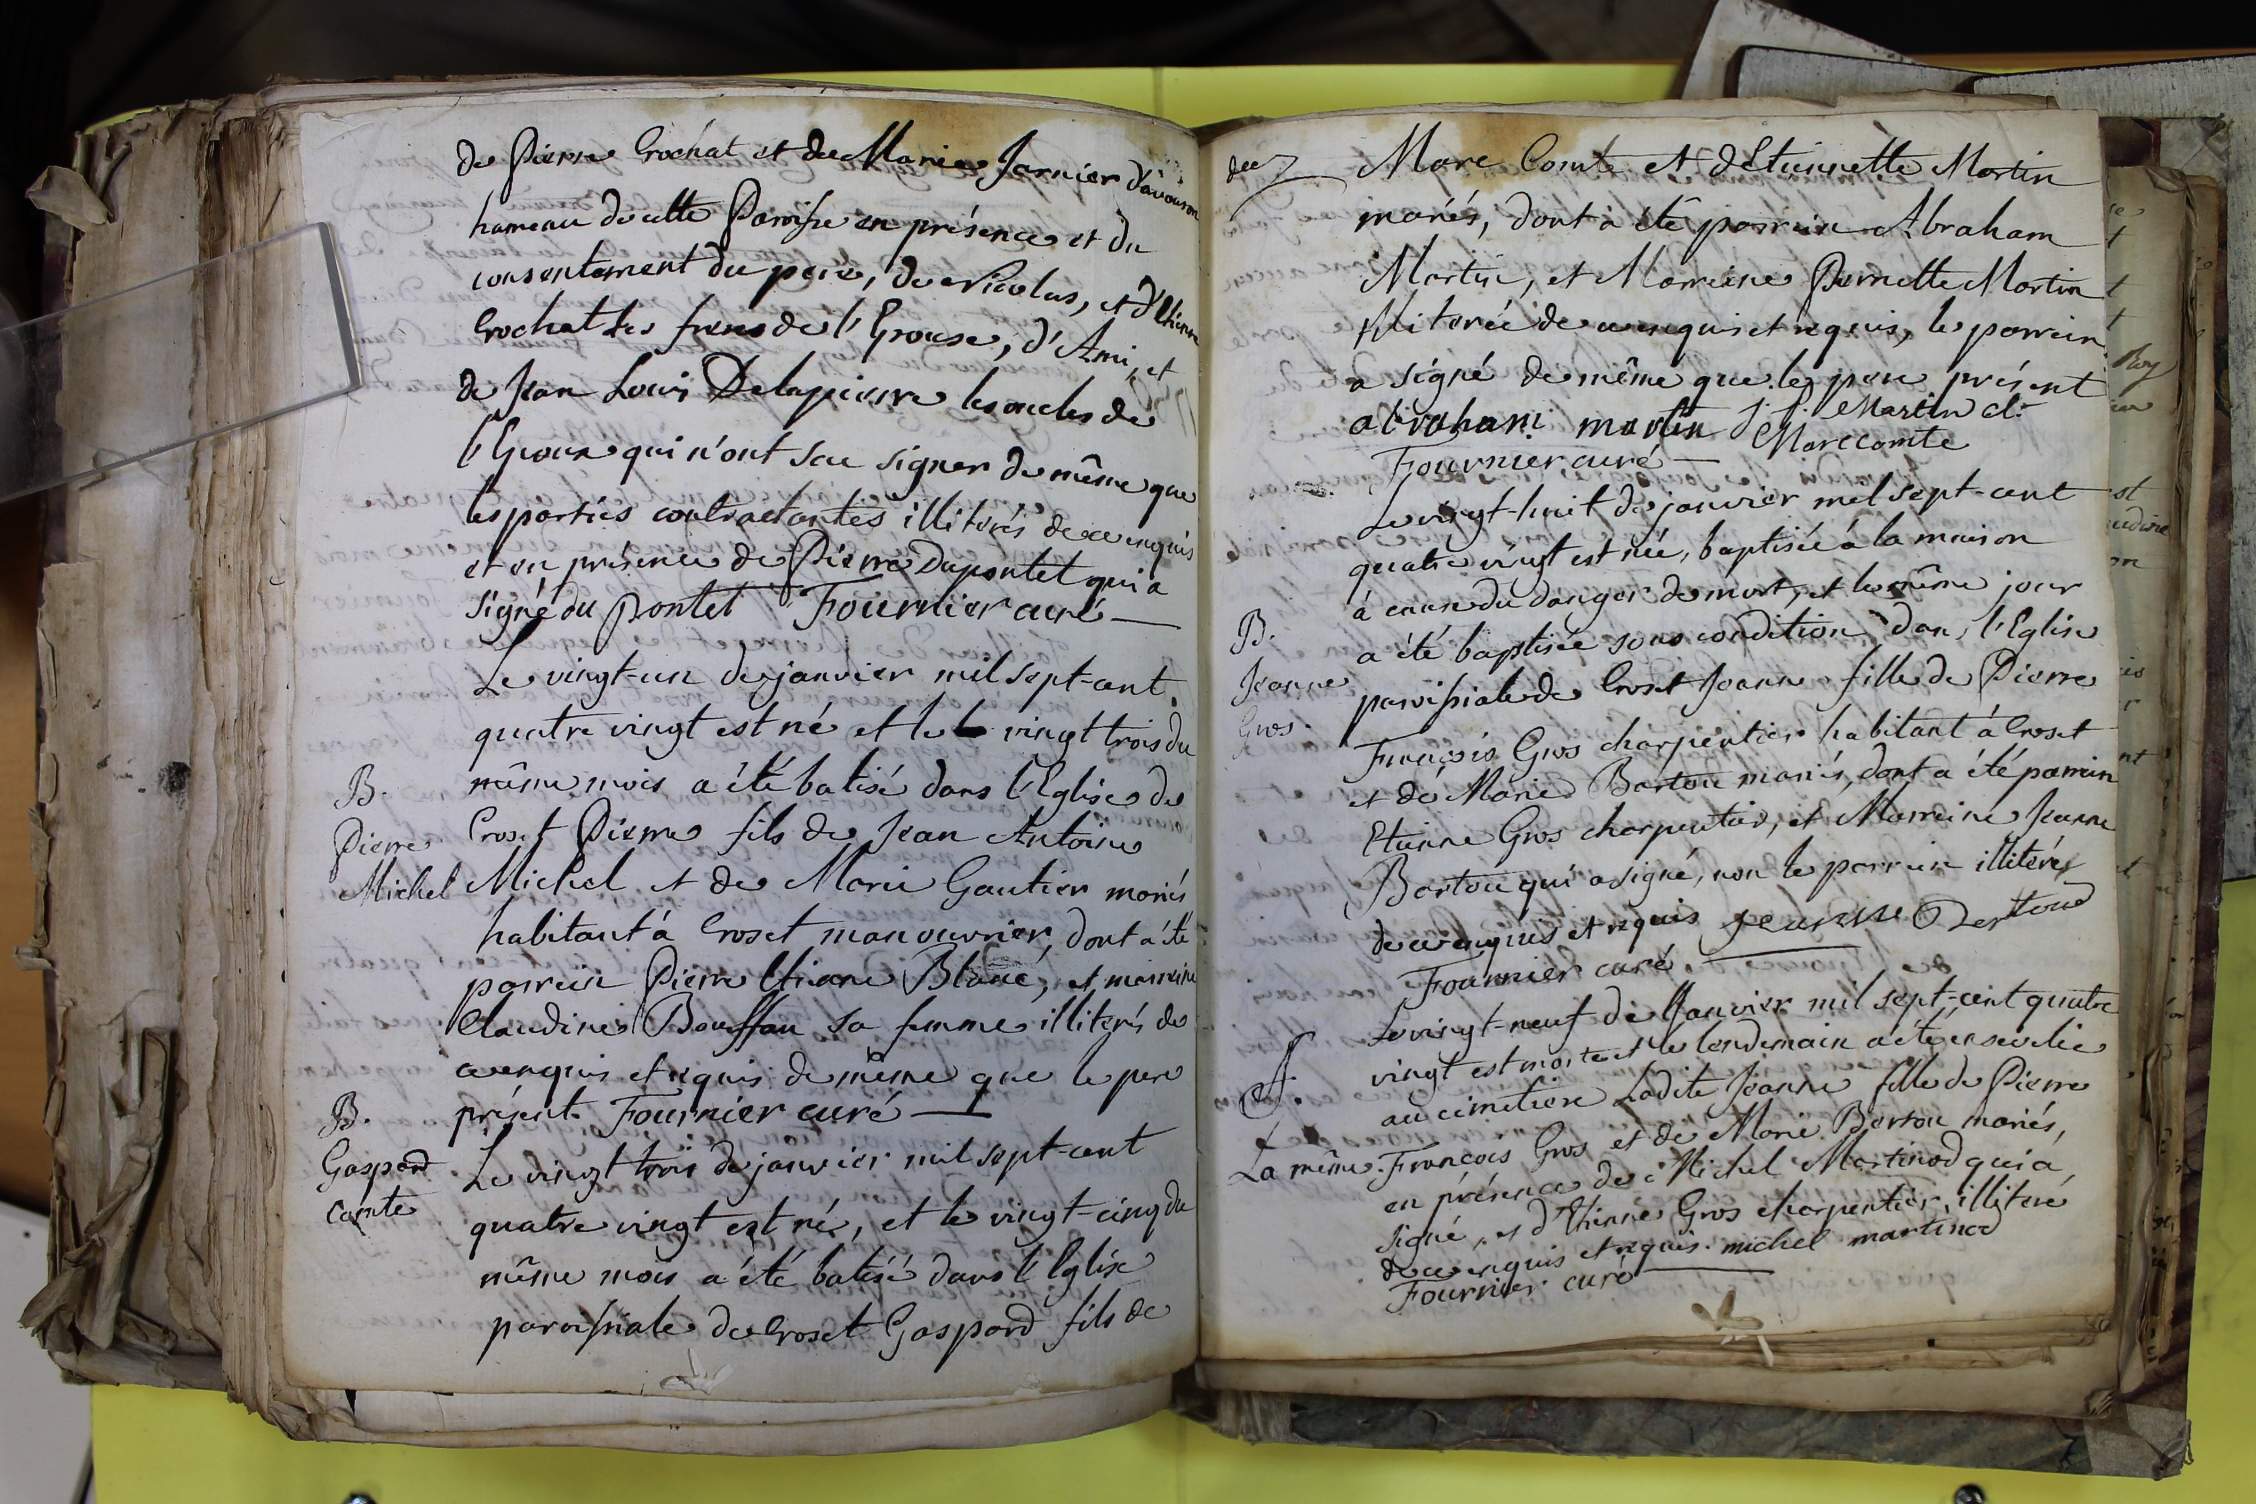 de Pierre Crochat et de Marie Jarnier d'avouson
hameau de cette Paroisse en présence et du
consentement du pere, de Nicolas, et d'Etienne
Crochat les freres de l'Epouse, d'Ami, et
de Jean Louis Delapierre les oncles de
l'Epoux qui n'ont scu signer de même que
les parties contractantes illiterés de ce enquis
et en présence de Pierre Dupontet qui a
signé du pontet Fournier curé
Le vingt-un de janvier mil sept-cent
quatre vingt est né et le vingt trois du
même mois a été batisé dans l'Eglise de
B.
Pierre
Michel
Croset Pierre fils de Jean Antoine
Michel et de Marie Gautier mariés
habitant à Croset manouvrier, dont a été
parrein Pierre Etiene Blanc, et marreine
Claudine Bouffau sa femme illiterés de
ce enquis et requis de même que le pere
présent. Fournier curé
B.
Gaspard
Comte
Le vingt trois de janvier mil sept-cent
quatre vingt est né, et le vingt-cinq du
même mois a été batisé dans l'Eglise
paroissiale de Croset Gaspard fils de
de Marc Comte et d'Etiennette Martin
mariés, dont a été parrein Abraham
Martin, et Marreine Pernette Martin
illiterée de ce enquis et requis, le parrein
a signé de même que le pere présent
abraham martin J. P. Martin cl.
Fournier curé Marc comte
Le vingt-huit de janvier mil sept-cent
quatre vingt est née, baptisée à la maison
à cause du danger de mort, et le même jour
B.
Jeanne
Gros.
a été baptisée sous condition dans l'Eglise
paroissiale de Croset Jeanne fille de Pierre
François Gros charpentier habitant à Croset
et de Marie Bertou mariés, dont a été parrein
Etienne Gros charpentier, et Marreine Jeanne
Bertou qui a signé, non le parrein illiteré
de ce enquis et requis Jeanne Bertoud
Fournier curé.
Le vingt-neuf de Janvier mil sept-cent quatre
vingt est morte et le lendemain a été ensevelie
au cimetiere Ladite Jeanne fille de Pierre
La même.
François Gros et de Marie Bertou mariés,
en présence de Michel Martinod qui a
signé, et d'Etienne Gros charpentier, illiteré
de ce enquis et requis. michel martinod
Fournier curé